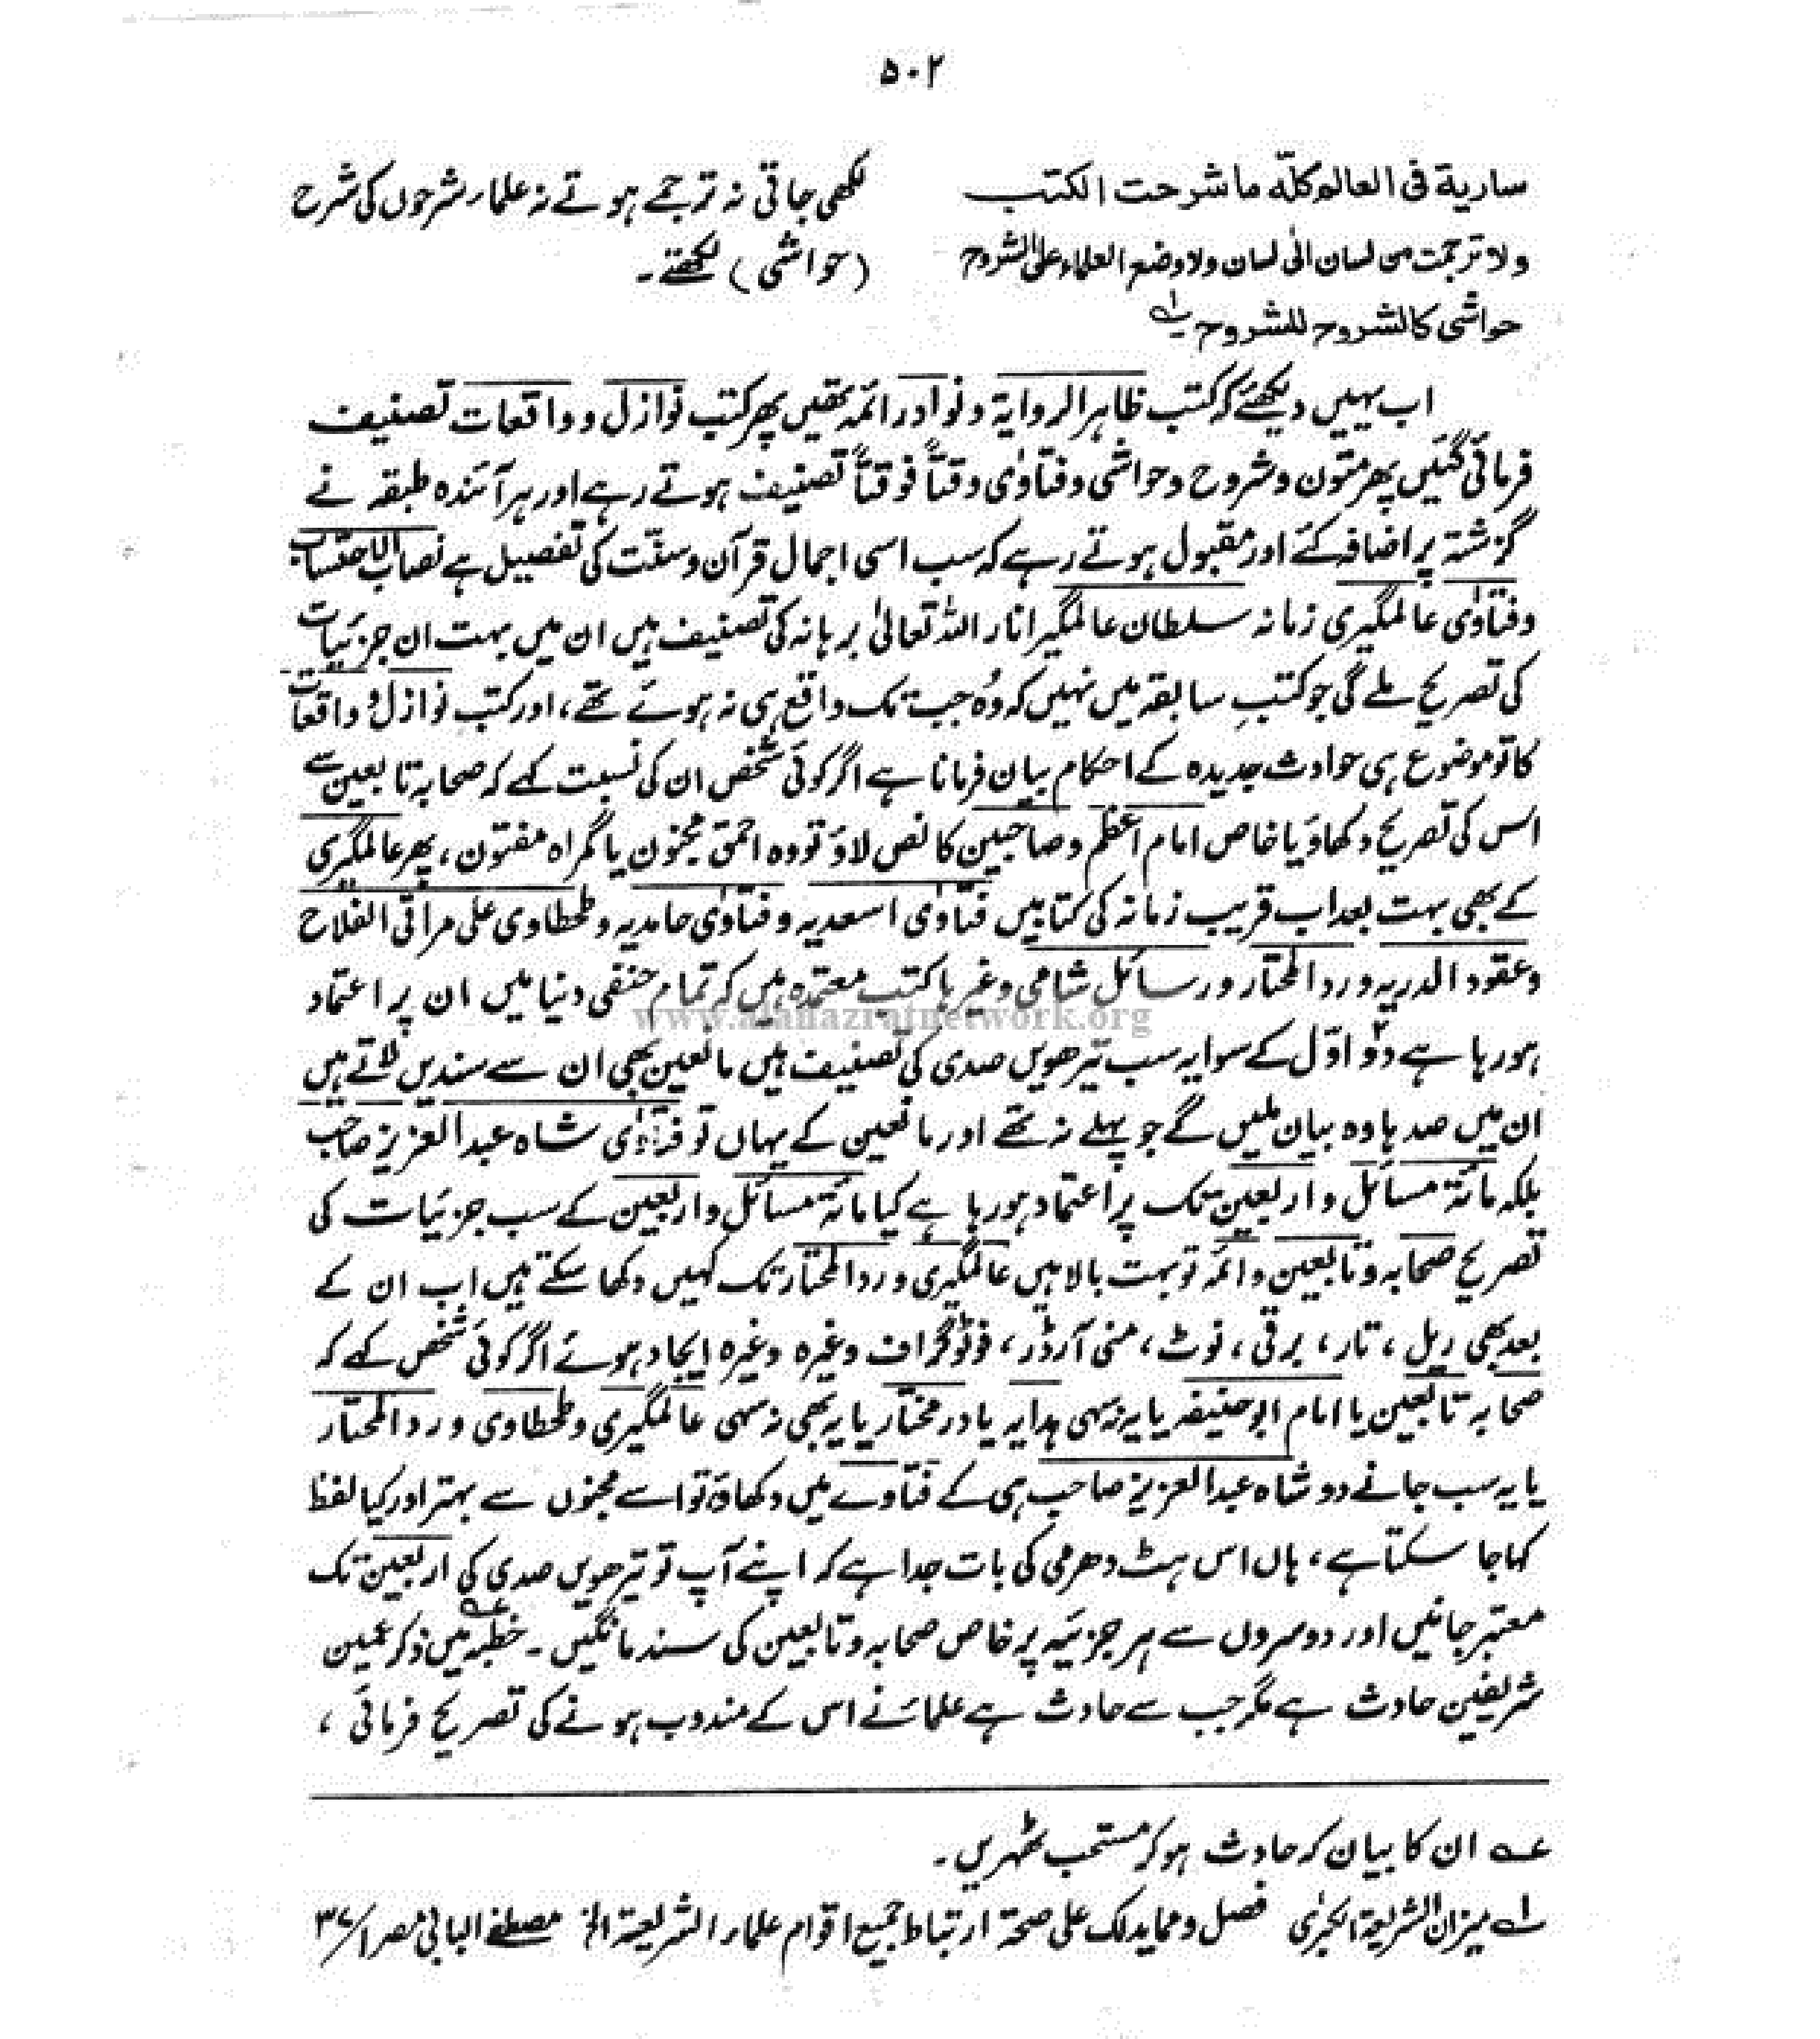 ۵۰۲
ساریة فی العالم کلّه ما شرحت الکتب
ولا ترجمت من لسان الٰی لسان ولا وضع العلماء علی الشروح
حواشی کالشروح للشروح۔ ؎۱
لکھی جاتی نہ ترجمے ہوتے نہ علماء شرحوں کی شرح
(حواشی) لکھتے۔
اب یہیں دیکھئے کہ کتب ظاہر الروایۃ و نوادر ائمہ تھیں پھر کتب نوازل و واقعات تصنیف
فرمائی گئیں پھر متون و شروح و حواشی و فتاوٰی وقتاً فوقتاً تصنیف ہوتے رہے اور ہر آئندہ طبقہ نے
گزشتہ پر اضافہ کئے اور مقبول ہوتے رہے کہ سب اسی اجمال قرآن و سنّت کی تفصیل ہے نصاب الاحتساب
و فتاوٰی عالمگیری زمانہ سلطان عالمگیر انار اللہ تعالٰی برہانہ کی تصنیف ہیں ان میں بہت ان جزئیات
کی تصریح ملے گی جو کتبِ سابقہ میں نہیں کہ وُہ جب تک واقع ہی نہ ہوئے تھے، اور کتب نوازل و واقعات
کا تو موضوع ہی حوادث جدیدہ کے احکام بیان فرمانا ہے اگر کوئی شخص ان کی نسبت کہے کہ صحابہ تابعین سے
اس کی تصریح دکھاؤ یا خاص امام اعظم و صاحبین کا نص لاؤ تو وہ احمق مجنون یا گمراہ مفتون، پھر عالمگیری
کے بھی بہت بعد اب قریب زمانہ کی کتابیں فتاوٰی اسعدیہ و فتاوٰی حامدیہ و طحطاوی علی مراقی الفلاح
و عقود الدریہ و ردالمحتار و رسائل شامی وغیرہا کتب معتمدہ ہیں کہ تمام حنفی دنیا میں ان پر اعتماد
www.alahazratnetwork.org
ہو رہا ہے دو۲ اوّل کے سوا یہ سب تیرھویں صدی کی تصنیف ہیں مانعین بھی ان سے سندیں لاتے ہیں
ان میں صدہا وہ بیان ملیں گے جو پہلے نہ تھے اور مانعین کے یہاں تو فتاوٰی شاہ عبدالعزیز صاحب
بلکہ مائۃ مسائل و اربعین تک پر اعتماد ہو رہا ہے کیا مائۃ مسائل و اربعین کے سب جزئیات کی
تصریح صحابہ و تابعین و ائمہ تو بہت بالا ہیں عالمگیری و ردالمحتار تک کہیں دکھا سکتے ہیں اب ان کے
بعد بھی ریل، تار، برقی، نوٹ، منی آرڈر، فوٹو گراف وغیرہ وغیرہ ایجاد ہوئے اگر کوئی شخص کہے کہ
صحابہ تابعین یا امام ابوحنیفہ یا یہ نہ سہی ہدایہ یا درمختار یا یہ بھی نہ سہی عالمگیری و طحطاوی و ردالمحتار
یا یہ سب جانے دو شاہ عبدالعزیز صاحب ہی کے فتاوے میں دکھاؤ تو اسے مجنوں سے بہتر اور کیا لفظ
کہا جا سکتا ہے، ہاں اس ہٹ دھرمی کی بات جدا ہے کہ اپنے آپ تو تیرھویں صدی کی اربعین تک
معتبر جانیں اور دوسروں سے ہر جزئیہ پر خاص صحابہ و تابعین کی سند مانگیں۔ خطبہ؏ میں ذکر عمین
شریفین حادث ہے مگر جب سے حادث ہے علماء نے اس کے مندوب ہونے کی تصریح فرمائی،
؏ ان کا بیان کہ حادث ہو کر مستحب ٹھہریں۔
؎۱ میزان الشریعۃ الکبرٰی فصل ومما یدلک علی صحۃ ارتباط جمیع اقوام علماء الشریعۃ الخ مصطفے البابی مصر ۱/ ۳۷